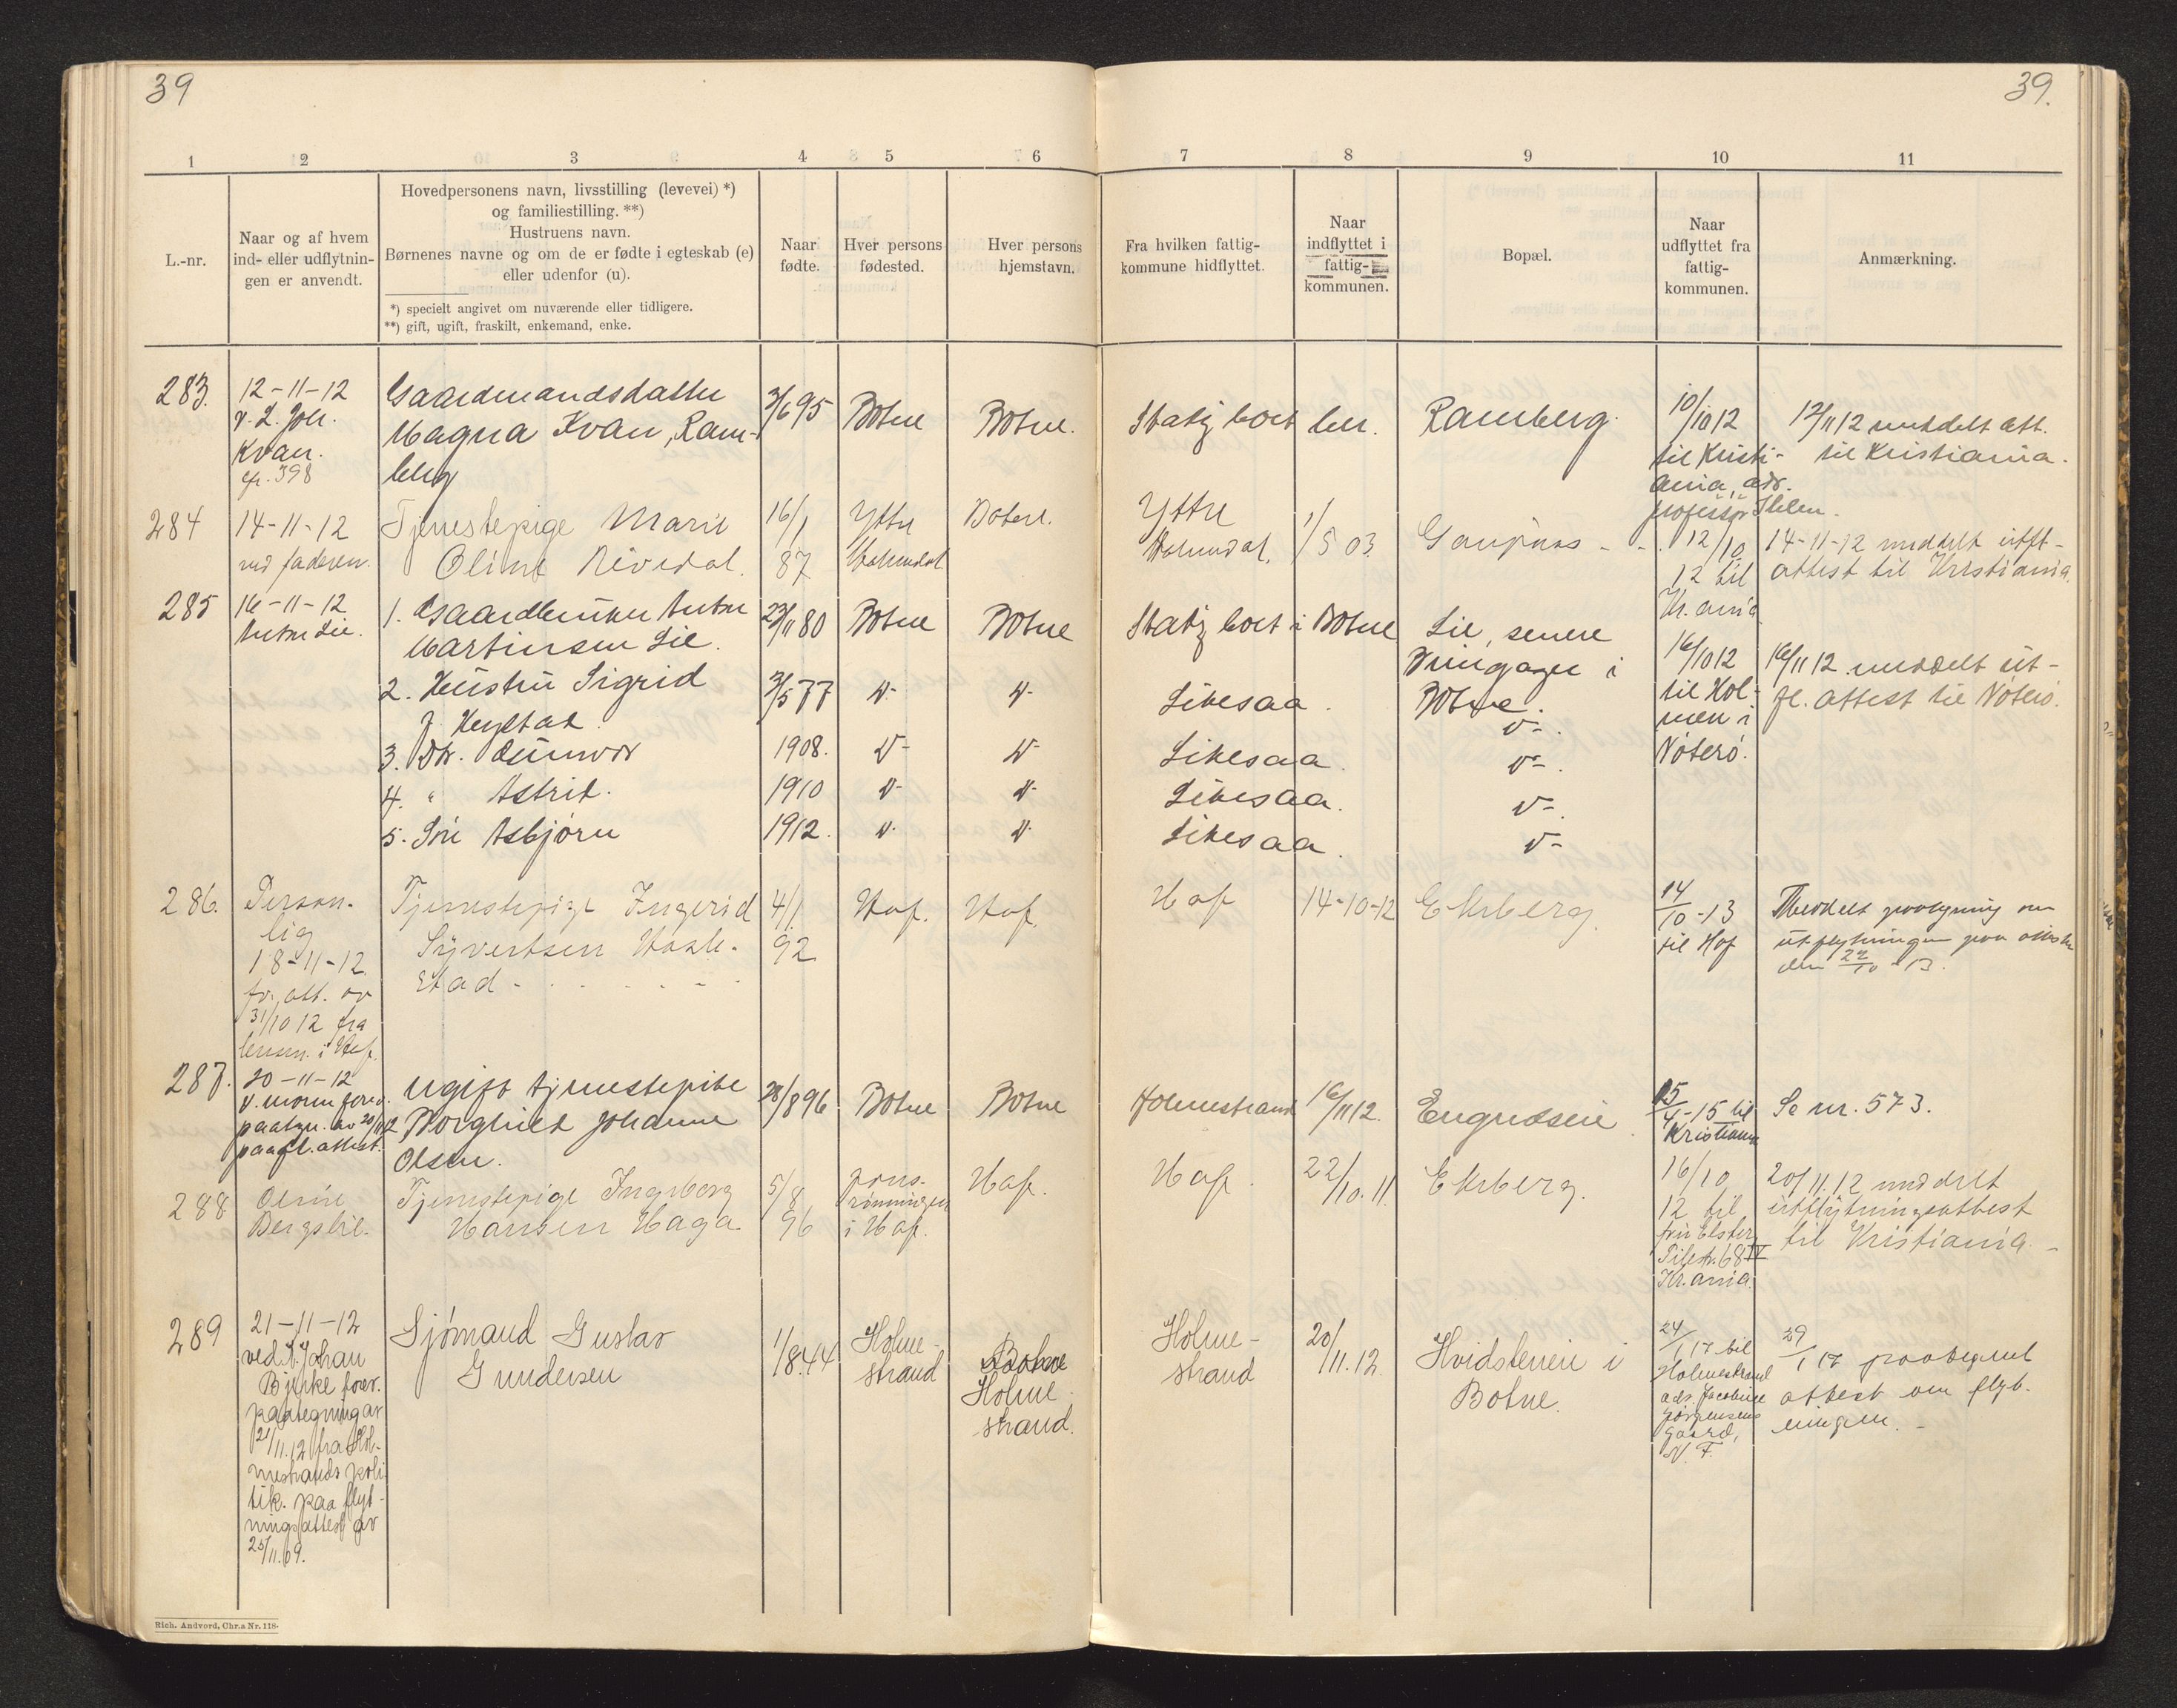 39
39.
1 2 3 4 5 6 7 8 9 10 11
L.-nr.
Naar og af hvem
ind- eller udflytnin-
gen er anvendt.
Hovedpersonens navn, livsstilling (levevei) *)
og familiestilling. **)
Hustruens navn.
Børnenes navne og om de er fødte i egteskab (e)
eller udenfor (u).
*) specielt angivet om nuværende eller tidligere.
**) gift, ugift, fraskilt, enkemand, enke.
Naar
fødte.
Hver persons
fødested.
Hver persons
hjemstavn.
Fra hvilken fattig-
kommune hidflyttet.
Naar
indflyttet i
fattig-
kommunen.
Bopæl.
Naar
udflyttet fra
fattig-
kommunen.
Anmærkning.
283.
12-11-12
v. L. Joh.
Kvan.
cfr. 398
Gaardmandsdatter
Magna Kvan, Ram-
berg
2/6 95
Botne
Botne.
Stadig boet her.
Ramberg.
10/10 12
til Kristi-
ania, adr.
professor
12/11 12 meddelt att.
til Kristiania.
284
14-11-12
ved faderen.
Tjenestepige Marie
Oline Rivedal.
16/1
87
Ytre
Holmedal
Botne.
Ytre
Holmedal.
1/5 03.
Gaupaas - -
12/10
12 til
Kr.ania
14-11-12 meddelt utfl-
attest til Kristiania.
285
16-11-12
Anton Lie.
1. Gaardbruker Anton
Martinsen Lie.
23/11 80
Botne
Botne
Stadig boet i Botne
Lie, senere
i
Botne.
16/10 12
til Hol-
men i
Nøterø.
16/11 12 meddelt ut-
fl. attest til Nøterø.
2. Hustru Sigrid
f.
2/5 77
v-
v-
Likesaa.
v-.
3. Dtr. Gunvor
1908.
v-
v-
Likesaa.
v-.
4. " Astrid.
1910
v-
v-
Likesaa.
v-.
5. Søn Asbjørn
1912.
v-
v-
Likesaa.
v-
286.
Person-
lig
18-11-12.
fr. att. av
31/10 12 fra
lensm. i Hof.
Tjenestepige Ingerid
Syvertsen Hasle-
stad - - - - - -
4/1
92
Hof.
Hof.
Hof
14-10-12
Ekeberg.
14/10-13
til Hof
Meddelt paategning om
utflytningen paa attesten
den 22/10-13.
287.
20-11-12
v. moren forev.
paategn. av 20/11 12
paa fl. attest.
Ugift tjenestepike
Borghild Johanne
Olsen.
28/8 96
Botne
Botne
Holmestrand
16/11 12.
Engnæseie.
15/4-15 til
Kristiania
Se nr. 573.
288
Oline
Bergslie.
Tjenestepige Ingeborg
Hansen Haga.
5/8
96
rønningen
i Hof.
Hof.
Hof.
22/10.11
Ekeberg.
16/10
12 til
fru Elster
Pilestr. 68 IV
Kr.ania
20/11.12 meddelt
utflytningsattest
til Kristiania. -
289
21-11-12
ved Johan
Bjerke forev.
paategning av
21/11.12 fra Hol-
mestrands poli
tik. paa flyt-
ningsattest av
25/11.09.
Sjømand Gustav
Gundersen
1/8.44
Holme-
strand
Botne
Holme
strand.
Holme-
strand
20/11.12
Hvidstenen i
Botne.
24/1 17 til
Holmestrand
adr. Jacobine
Jørgensens
gaard,
N.F.
29/1 17 paategnet
attest om flyt-
ningen. -
Rich. Andvord, Chr.a Nr. 118.